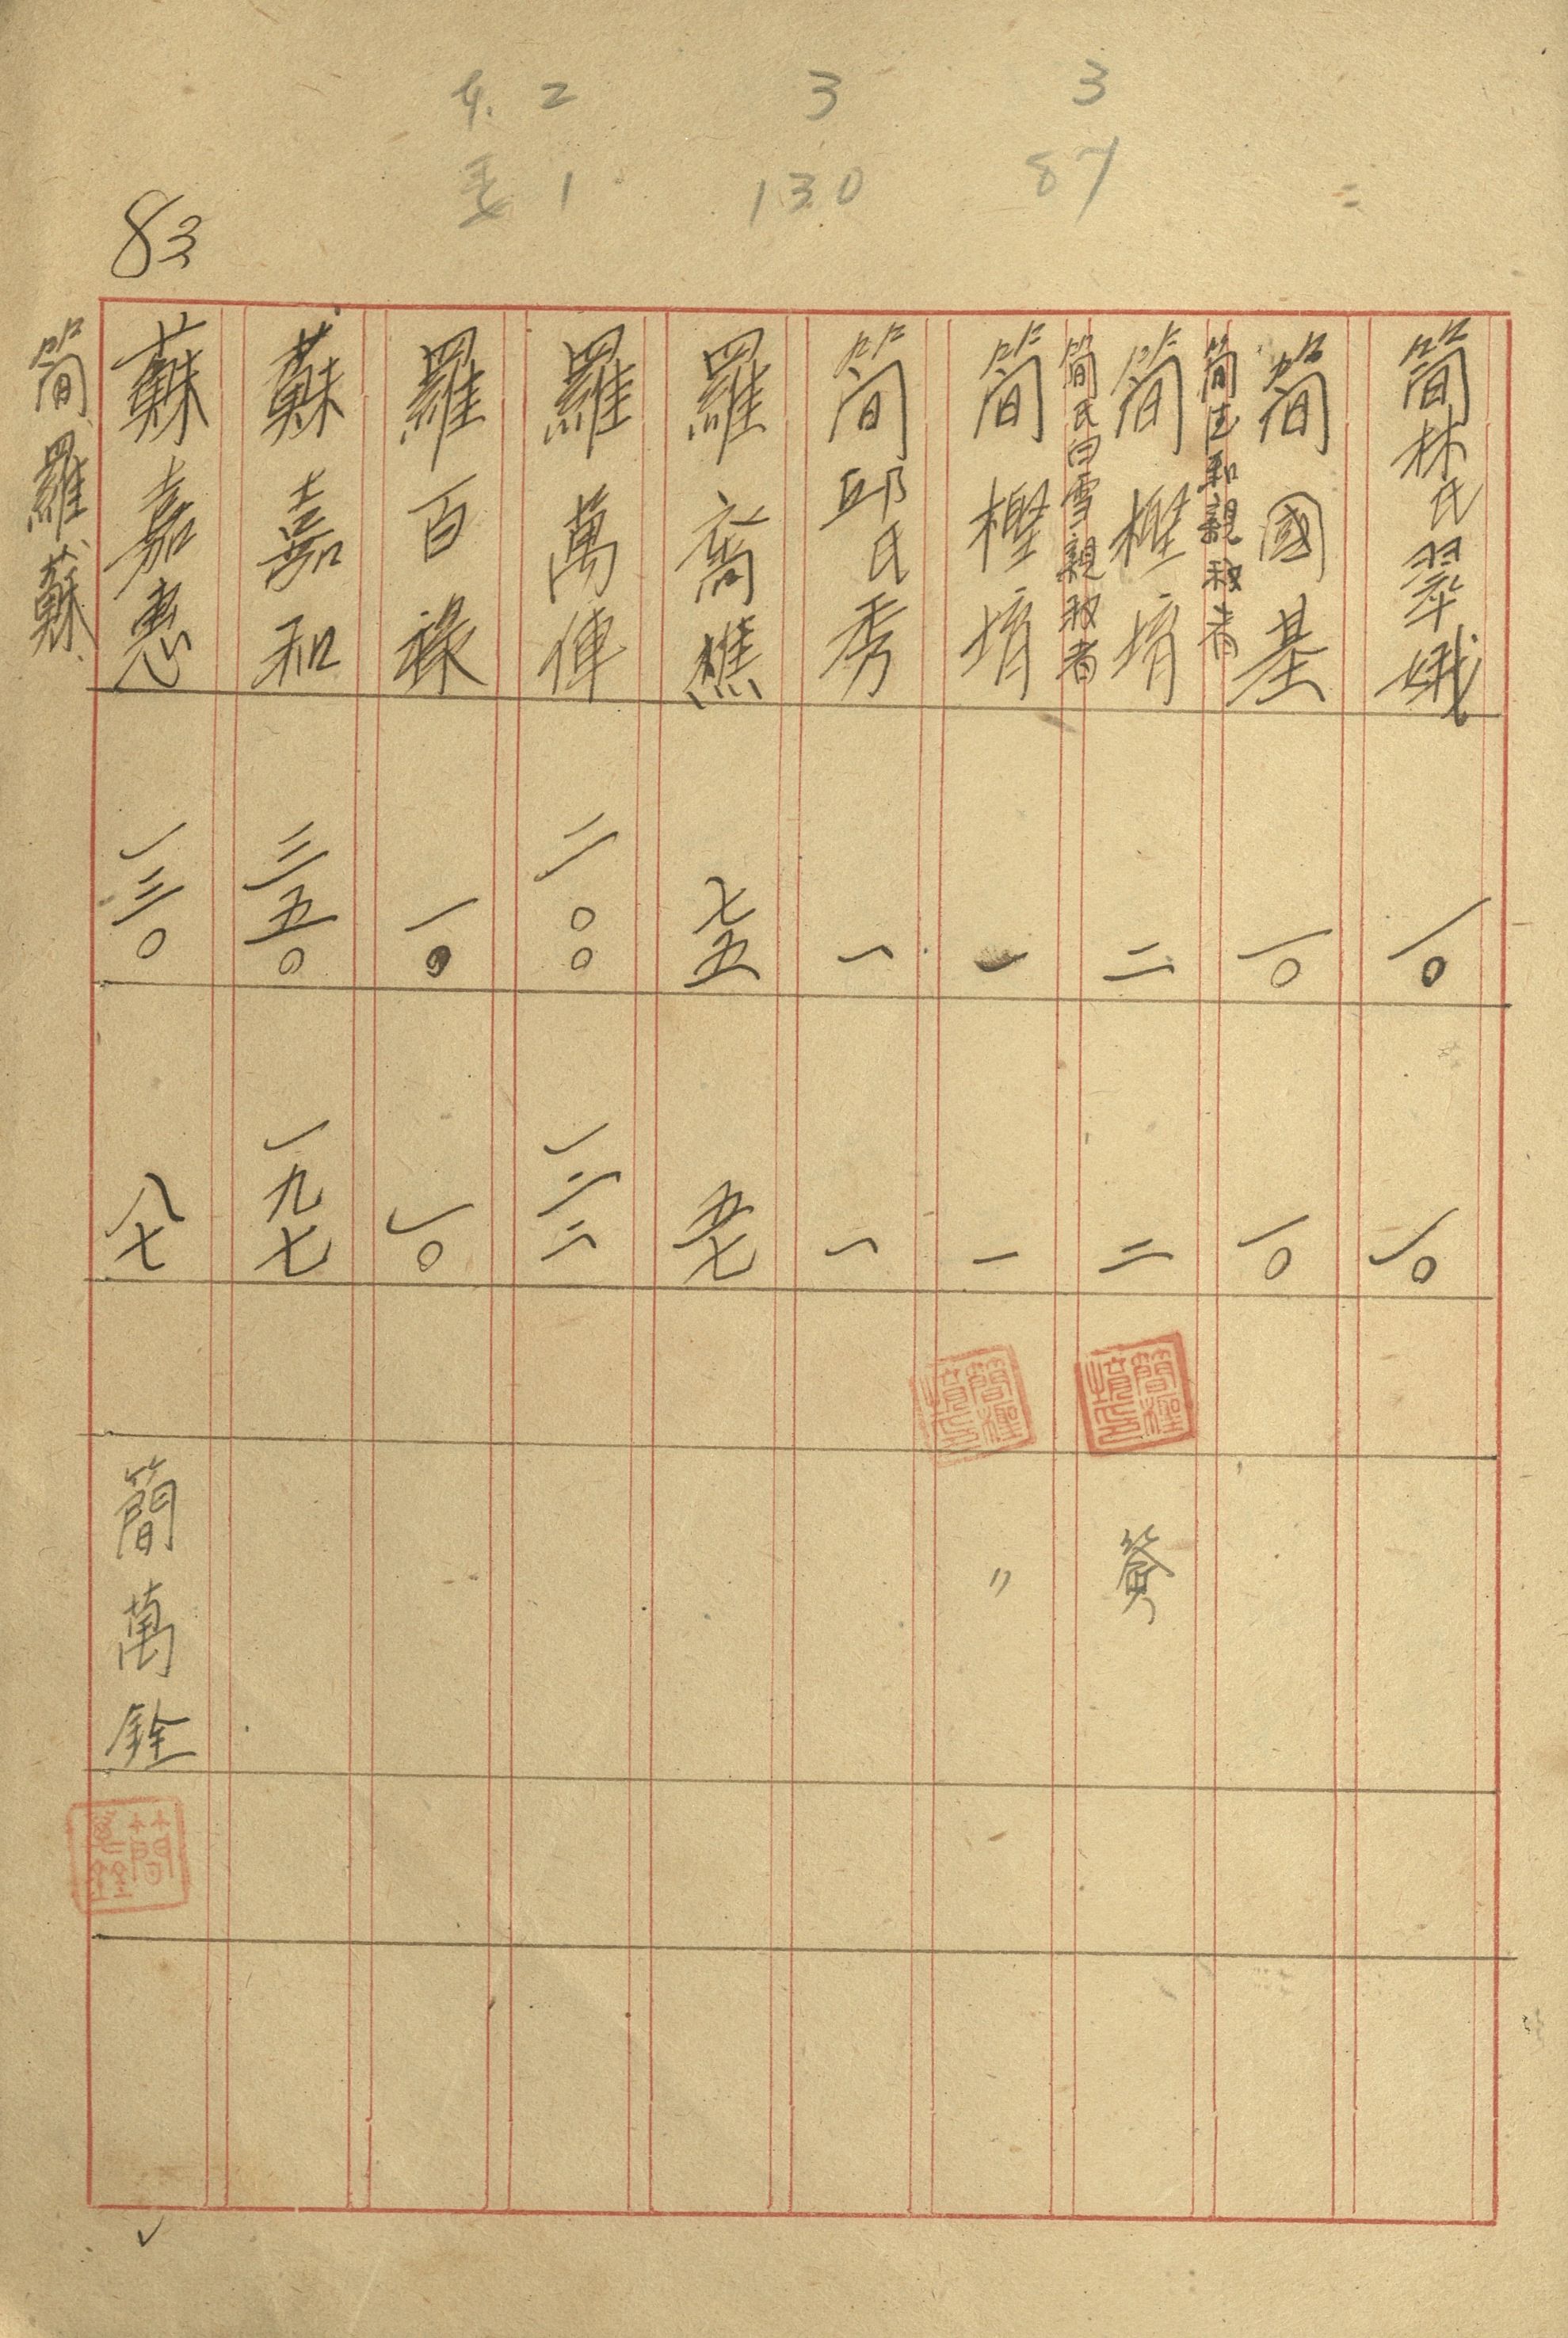 本. 2 3 3
委 1 130 87
83
簡林氏翠娥 一〇 一〇
簡國基 一〇 一〇
簡玉和親权者
簡樫堉 二 二 簡樫堉印
簡氏白雪親权者
簡樫堉 一 一 簡樫堉印 〃
簡邱氏秀 一 一
羅裔樵 七五 五七
羅萬俥 二〇〇 一二二
羅百祿 一〇 一〇
蘇嘉和 三五〇 一九七
蘇嘉惠 一三〇 八七 簡萬銓 簡萬銓
簡、羅、蘇、